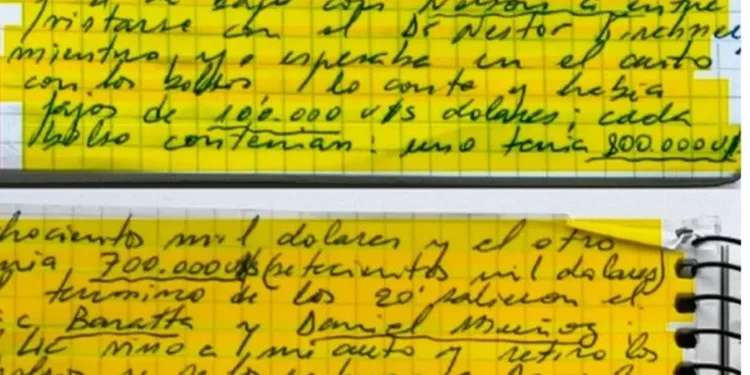 se bajo con Nelson a entre
vistarse con el Dr Nestor Kirchner
mientras yo esperaba en el auto
con los bolsos lo conte y habia
fajos de 100.000 u$s dolares; cada
bolso contenian: uno tenia 800.000 u$
hocientos mil dolares y el otro
nia 700.000 u$s (setecientos mil dolares)
termino de los 20' salieron el
c Baratta y Daniel Muñoz.
Lic vino a mi auto y retiro los